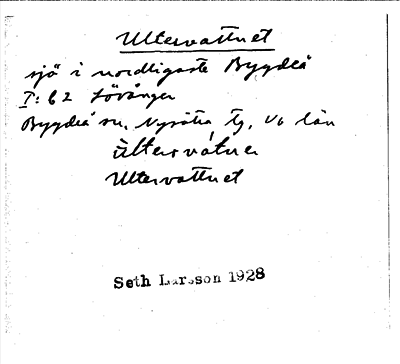 Ultervattnet
sjö i nordligaste Bygdeå
I: 62 Lövånger
Bygdeå sn, Nysätra tg, Vb län
ùltərvátnə
Ultervattnet
Seth Larsson 1928